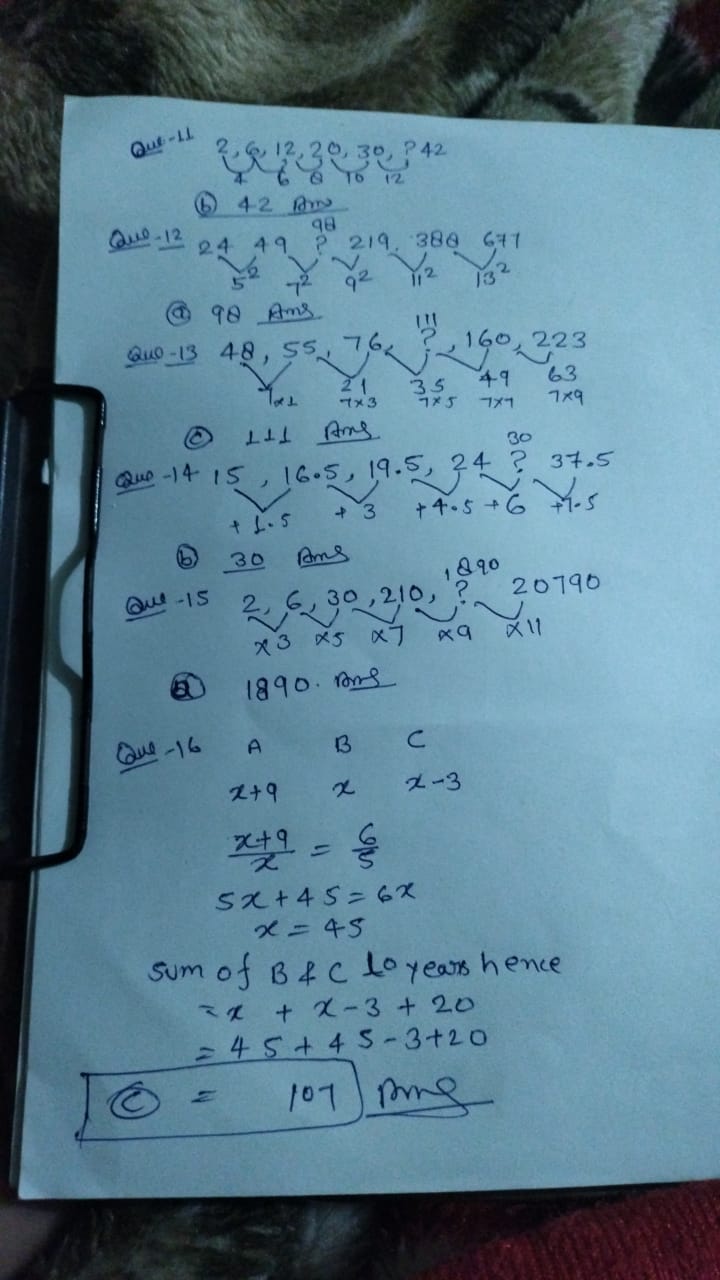 Que-11 2, 6, 12, 20, 30, ? 42
4 6 8 10 12
(b) 42 Ans
98
Que-12 24 49 ? 219, 388 677
5² 7² 9² 11² 13²
(a) 98 Ans
111
Que-13 48, 55, 76, ?, 160, 223
21 35 49 63
7x1 7x3 7x5 7x7 7x9
(c) 111 Ans
30
Que-14 15, 16.5, 19.5, 24 ? 37.5
+1.5 +3 +4.5 +6 +7.5
(b) 30 Ans
1890
Que-15 2, 6, 30, 210, ? 20790
x3 x5 x7 x9 x11
(a) 1890. Ans
Que-16 A B C
x+9 x x-3
x+9/x = 6/5
5x+45=6x
x=45
Sum of B & C 10 years hence
= x + x-3 + 20
= 45+45-3+20
(c) = 107 Ans